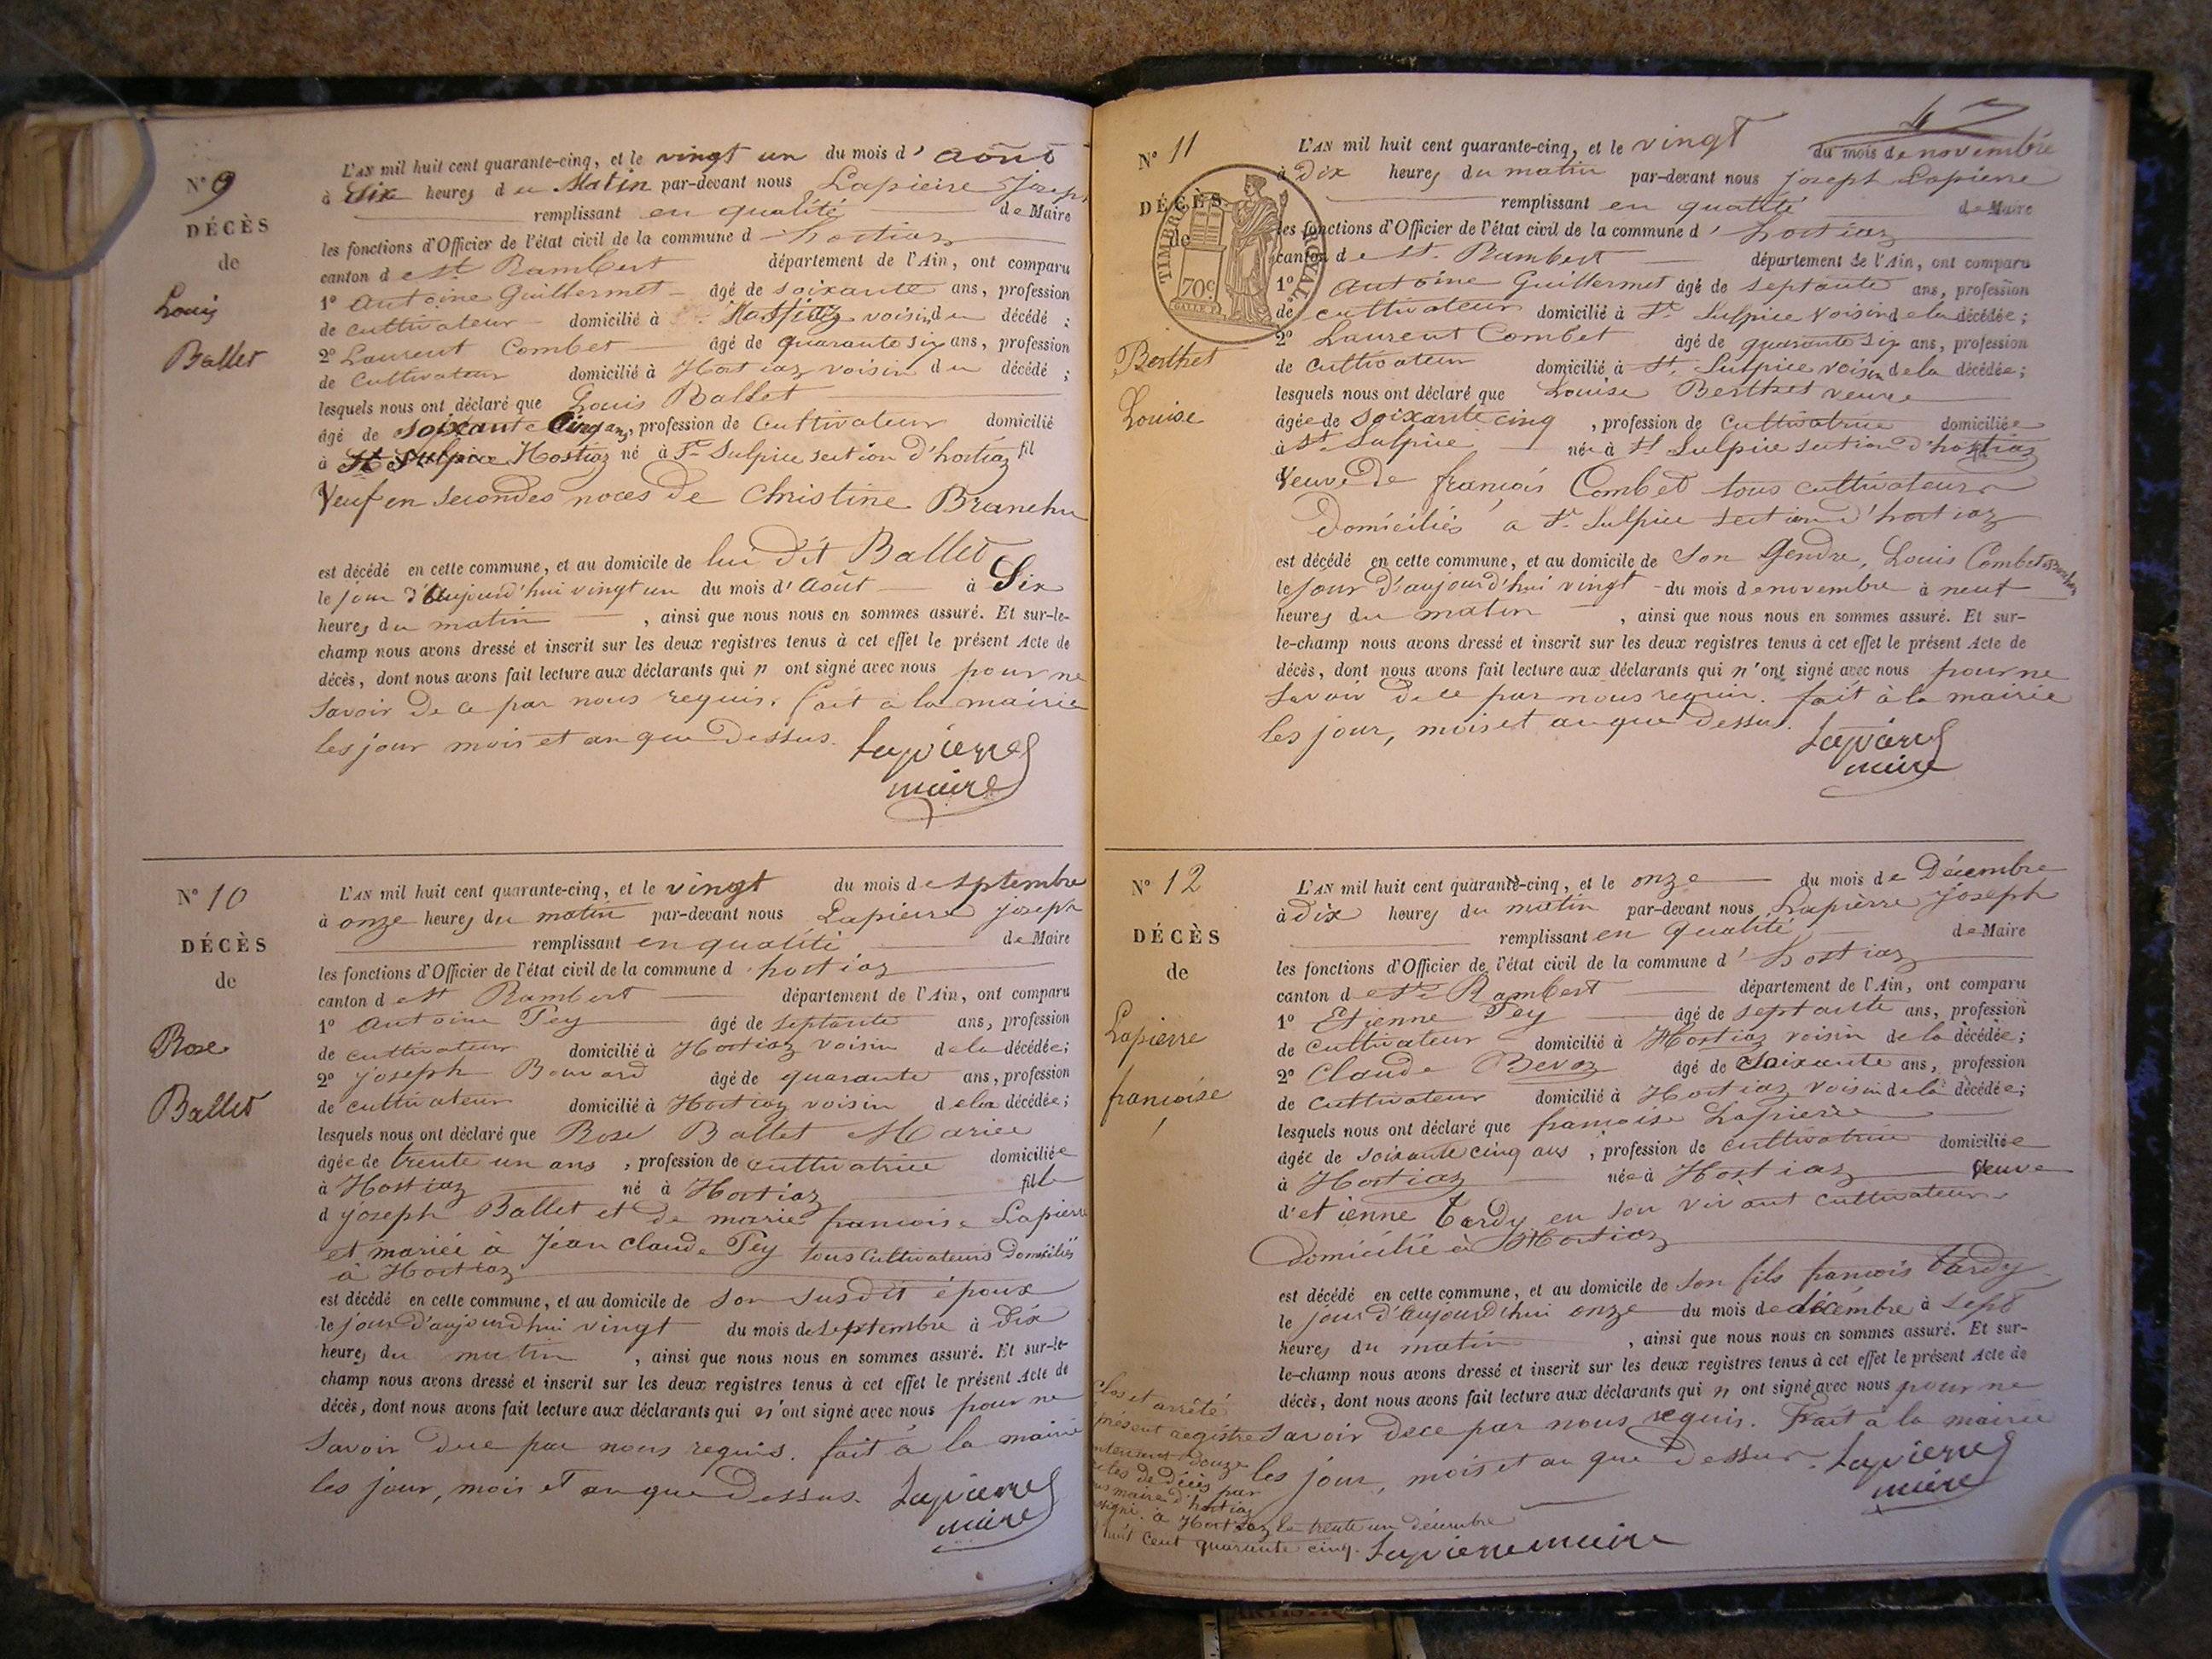 N° 9
DÉCÈS
de
Louis
Ballet
L'AN mil huit cent quarante-cinq, et le vingt un du mois d'août
à Six heures du Matin par-devant nous Lapierre Joseph
remplissant en qualité de Maire
les fonctions d'Officier de l'état civil de la commune d'hostiaz
canton de St Rambert département de l'Ain, ont comparu
1° Antoine Guillermet âgé de soixante ans, profession
de cultivateur domicilié à Hostiaz voisin du décédé ;
2° Laurent Combet âgé de quarante six ans, profession
de Cultivateur domicilié à Hostiaz voisin du décédé ;
lesquels nous ont déclaré que Louis Ballet
âgé de soixante Cinq ans, profession de Cultivateur domicilié
à St Sulpice Hostiaz né à St Sulpice section d'hostiaz fil
Veuf en secondes noces de Christine Branche
est décédé en cette commune, et au domicile de lui dit Ballet
le jour d'aujourd'hui vingt un du mois d'Août à Six
heures du matin , ainsi que nous nous en sommes assuré. Et sur-le-
champ nous avons dressé et inscrit sur les deux registres tenus à cet effet le présent Acte de
décès, dont nous avons fait lecture aux déclarants qui n ont signé avec nous pour ne
savoir de ce par nous requis. fait à la mairie
les jour mois et an que dessus. Lapierre
maire
N° 10
DÉCÈS
de
Rose
Ballet
L'AN mil huit cent quarante-cinq, et le vingt du mois de septembre
à onze heures du matin par-devant nous Lapierre joseph
remplissant en qualité de Maire
les fonctions d'Officier de l'état civil de la commune d'hostiaz
canton de St Rambert département de l'Ain, ont comparu
1° Antoine Pey âgé de septante ans, profession
de cultivateur domicilié à Hostiaz voisin de la décédée ;
2° joseph Bouvard âgé de quarante ans, profession
de cultivateur domicilié à Hostiaz voisin de la décédée ;
lesquels nous ont déclaré que Rose Ballet Mariée
âgée de trente un ans , profession de cultivatrice domiciliée
à Hostiaz né à Hostiaz fille
d joseph Ballet et de marie francoise Lapierre
et mariée à Jean claude Pey tous cultivateurs domiciliés
à Hostiaz
est décédé en cette commune, et au domicile de son susdit époux
le jour d'aujourdhui vingt du mois de septembre à dix
heures du matin , ainsi que nous nous en sommes assuré. Et sur-le-
champ nous avons dressé et inscrit sur les deux registres tenus à cet effet le présent Acte de
décès, dont nous avons fait lecture aux déclarants qui n'ont signé avec nous pour ne
savoir de ce par nous requis. fait à la mairie
les jour, mois et an que dessus. Lapierre
maire
N° 11
DÉCÈS
de
TIMBRE ROYAL
70c
Berthet
Louise
L'AN mil huit cent quarante-cinq, et le vingt du mois de novembre
à Dix heures du matin par-devant nous joseph Lapierre
remplissant en qualité de Maire
les fonctions d'Officier de l'état civil de la commune d'hostiaz
canton de St. Rambert département de l'Ain, ont comparu
1° Antoine Guillermet âgé de septante ans, profession
de cultivateur domicilié à St. Sulpice voisin de la décédée ;
2° Laurent Combet âgé de quarante six ans, profession
de Cultivateur domicilié à St. Sulpice voisin de la décédée ;
lesquels nous ont déclaré que Louise Berthet veuve
âgée de soixante cinq , profession de Cultivatrice domiciliée
à St. Sulpice née à St Sulpice section d'hostiaz
Veuve de francois Combet tous cultivateurs
Domiciliés a St. Sulpice section d'hostiaz
est décédé en cette commune, et au domicile de son Gendre, Louis Combet
le jour d'aujourd'hui vingt du mois de novembre à neuf
heures du matin , ainsi que nous nous en sommes assuré. Et sur-
le-champ nous avons dressé et inscrit sur les deux registres tenus à cet effet le présent Acte de
décès, dont nous avons fait lecture aux déclarants qui n'ont signé avec nous pour ne
savoir de ce par nous requis. fait à la mairie
les jour, mois et an que dessus. Lapierre
maire
N° 12
DÉCÈS
de
Lapierre
francoise
L'AN mil huit cent quarante-cinq, et le onze du mois de Décembre
à dix heures du matin par-devant nous Lapierre Joseph
remplissant en qualité de Maire
les fonctions d'Officier de l'état civil de la commune d'hostiaz
canton de St. Rambert département de l'Ain, ont comparu
1° Etienne Pey âgé de septante ans, profession
de cultivateur domicilié à Hostiaz voisin de la décédée ;
2° Claude Bevoz âgé de soixante ans, profession
de cultivateur domicilié à Hostiaz voisin de la décédée ;
lesquels nous ont déclaré que francoise Lapierre
âgée de soixante cinq ans , profession de cultivatrice domiciliée
à Hostiaz née à Hostiaz veuve
d'etienne tardy en son vivant cultivateur
Domicilié à Hostiaz
est décédé en cette commune, et au domicile de son fils francois tardy
le jour d'aujourd'hui onze du mois de décembre à sept
heures du matin , ainsi que nous nous en sommes assuré. Et sur-
le-champ nous avons dressé et inscrit sur les deux registres tenus à cet effet le présent Acte de
décès, dont nous avons fait lecture aux déclarants qui n ont signé avec nous pour ne
savoir de ce par nous requis. Fait à la mairie
les jour, mois et an que dessus. Lapierre
maire
Clos et arrêté
présent registre
contenant douze
actes de décès par
nous maire d'hostiaz
à Hostiaz le trente un décembre
huit cent quarante cinq. Lapierre maire